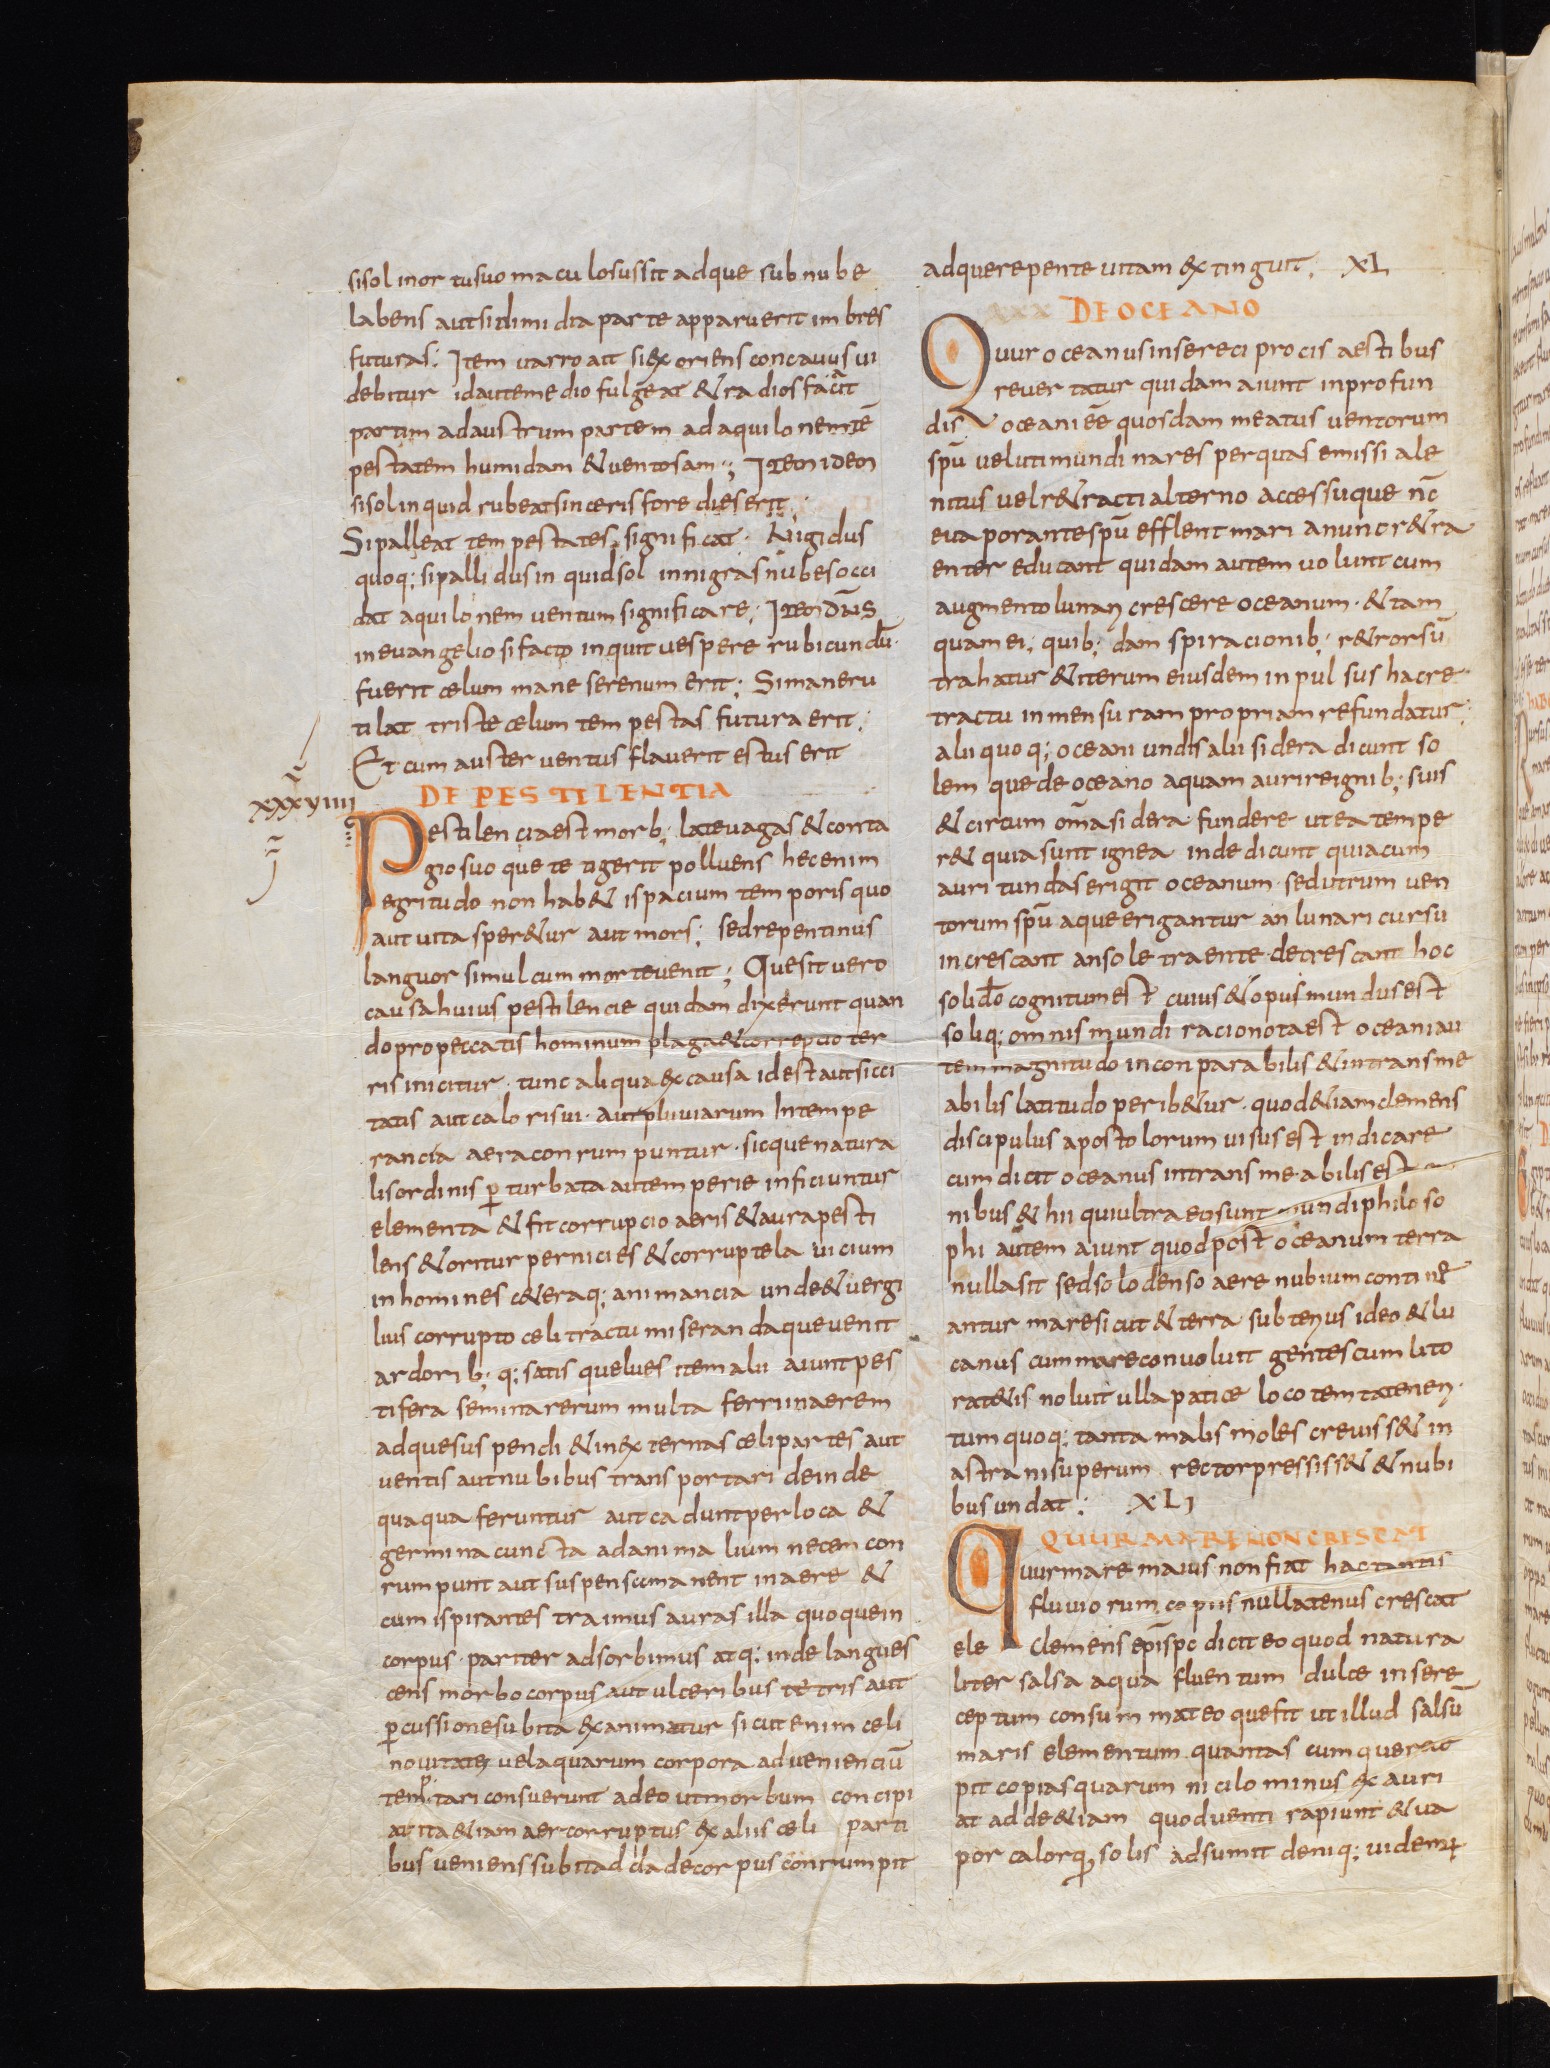 si sol in ortu suo maculosus sit adque sub nube
labens aut si dimidia parte apparuerit imbres
futuras; Item varro ait si exoriens concavus vi
debitur id aut e medio fulgeat & radios faciat
partim ad austrum partem ad aquilonem tē
pestatem humidam & ventosam; Item idem
si sol inquid rubeat sinceris fore dies erit;
Si palleat tempestates significat. Nigidus
quoq; si pallidus inquid sol in nigras nubes occi
dat aquilonem ventum significare; Item dn̄s
in evangelio si facto inquit vespere rubicundū
fuerit celum mane serenum erit; Si mane ru
tilat triste celum tempestas futura erit;
Et cum auster ventus flaverit estus erit
XXXVIIII DE PESTILENTIA
Pestilencia est morb; late vagas & conta
gio suo que tetigerit polluens hec enim
egritudo non hab& ispacium temporis quo
aut vita sper&ur aut mors; sed repentinus
languor simul cum morte venit; Que sit vero
causa huius pestilencie quidam dixerunt quan
do pro peccatis hominum plaga & correpcio ter
ris inicitur. tunc aliqua ex causa id est aut sicci
tatis aut caloris vi. aut pluviarum intempe
rancia aera conrumpuntur. sicque natura
lis ordinis p̄turbata autem perie inficiuntur
elementa & fit corrupcio aeris & aura pesti
lens & oritur pernicies & corruptela vicium
in homines c&eraq; animancia unde & vergi
lius corrupto celi tractu miseranda que venit
ardorib; q; satis que lues item alii aiunt pes
tifera semina rerum multa ferri in aerem
adque suspendi & in externas celi partes aut
ventis aut nubibus transportari deinde
quaqua feruntur aut cadunt per loca &
germina cuncta ad animalium necem con
rumpunt aut suspensa manent in aere &
cum ispirantes traimus auras illa quoque in
corpus. pariter adsorbimus atq; inde langues
cens morbo corpus aut ulceribus tetris aut
p̄cussione subita exanimatur sicut enim celi
novitate vel aquarum corpora advenienciū
temptari consuerunt adeo ut morbum concipi
at ita &iam aer corruptus ex aliis celi parti
bus veniens subita clade corpus conrumpit
adque repente vitam extinguit; XL
DE OCEANO
Quur oceanus in se reciprocis aestibus
revertatur quidam aiunt in profun
dis oceani ēē quosdam meatus ventorum
spū veluti mundi nares per quas emissi ale
nitus vel r&racti alterno accessuque nc̄
evaporante spū efflent mari a nunc r&ra
enter educant quidam autem volunt cum
augmento lunary crescere oceanum. & tam
quam ei; quib;dam spiracionib; r&rorsū
trahatur & iterum eiusdem inpulsus hac re
tractu in mensuram propriam refundatur;
alii quoq; oceani undis alii sidera dicunt so
lem que de oceano aquam aurire ignib; suis
& circum om̄a sidera fundere ut ea tempe
r& quia sunt ignea inde dicunt quia cum
aurit undas erigit oceanum. sed utrum ven
torum spū aque erigantur an lunari cursu
increscant an sole traente decrescant hoc
soli dō cognitum est cuius & opus mundus est
soliq; omnis mundi racio nota est oceani au
tem magnitudo inconparabilis & intransme
abilis latitudo perib&ur. quod &iam clemens
discipulus apostolorum visus est indicare
cum dicit oceanus intransmeabilis est
nibus & hii qui ultra eo sunt mundi philoso
phi autem aiunt quod post oceanum terra
nulla sit sed solo denso aere nubium contine
antur mare sicut & terra subtenus ideo & lu
canus cum mare convoluit gentes cum lito
ra t&is noluit ulla patice loco
tum quoq; tanta malis moles creviss& in
astra ni superum rector pressiss& & nubi
bus undat; XLI
QUUR MARE NON CRESCAT
quur mare maius non fiat hac tantis
fluviorum copiis nullatenus crescat
ele Clemens episp̄c dicit eo quod natura
liter salsa aqua fluentum dulce in se re
ceptum consummat eo que fit ut illud salsū
maris elementum quantas cumque reci
pit copias aquarum nicilominus exauri
at adde &iam quod venti rapiunt & va
por calorq; solis adsumit deniq; videm